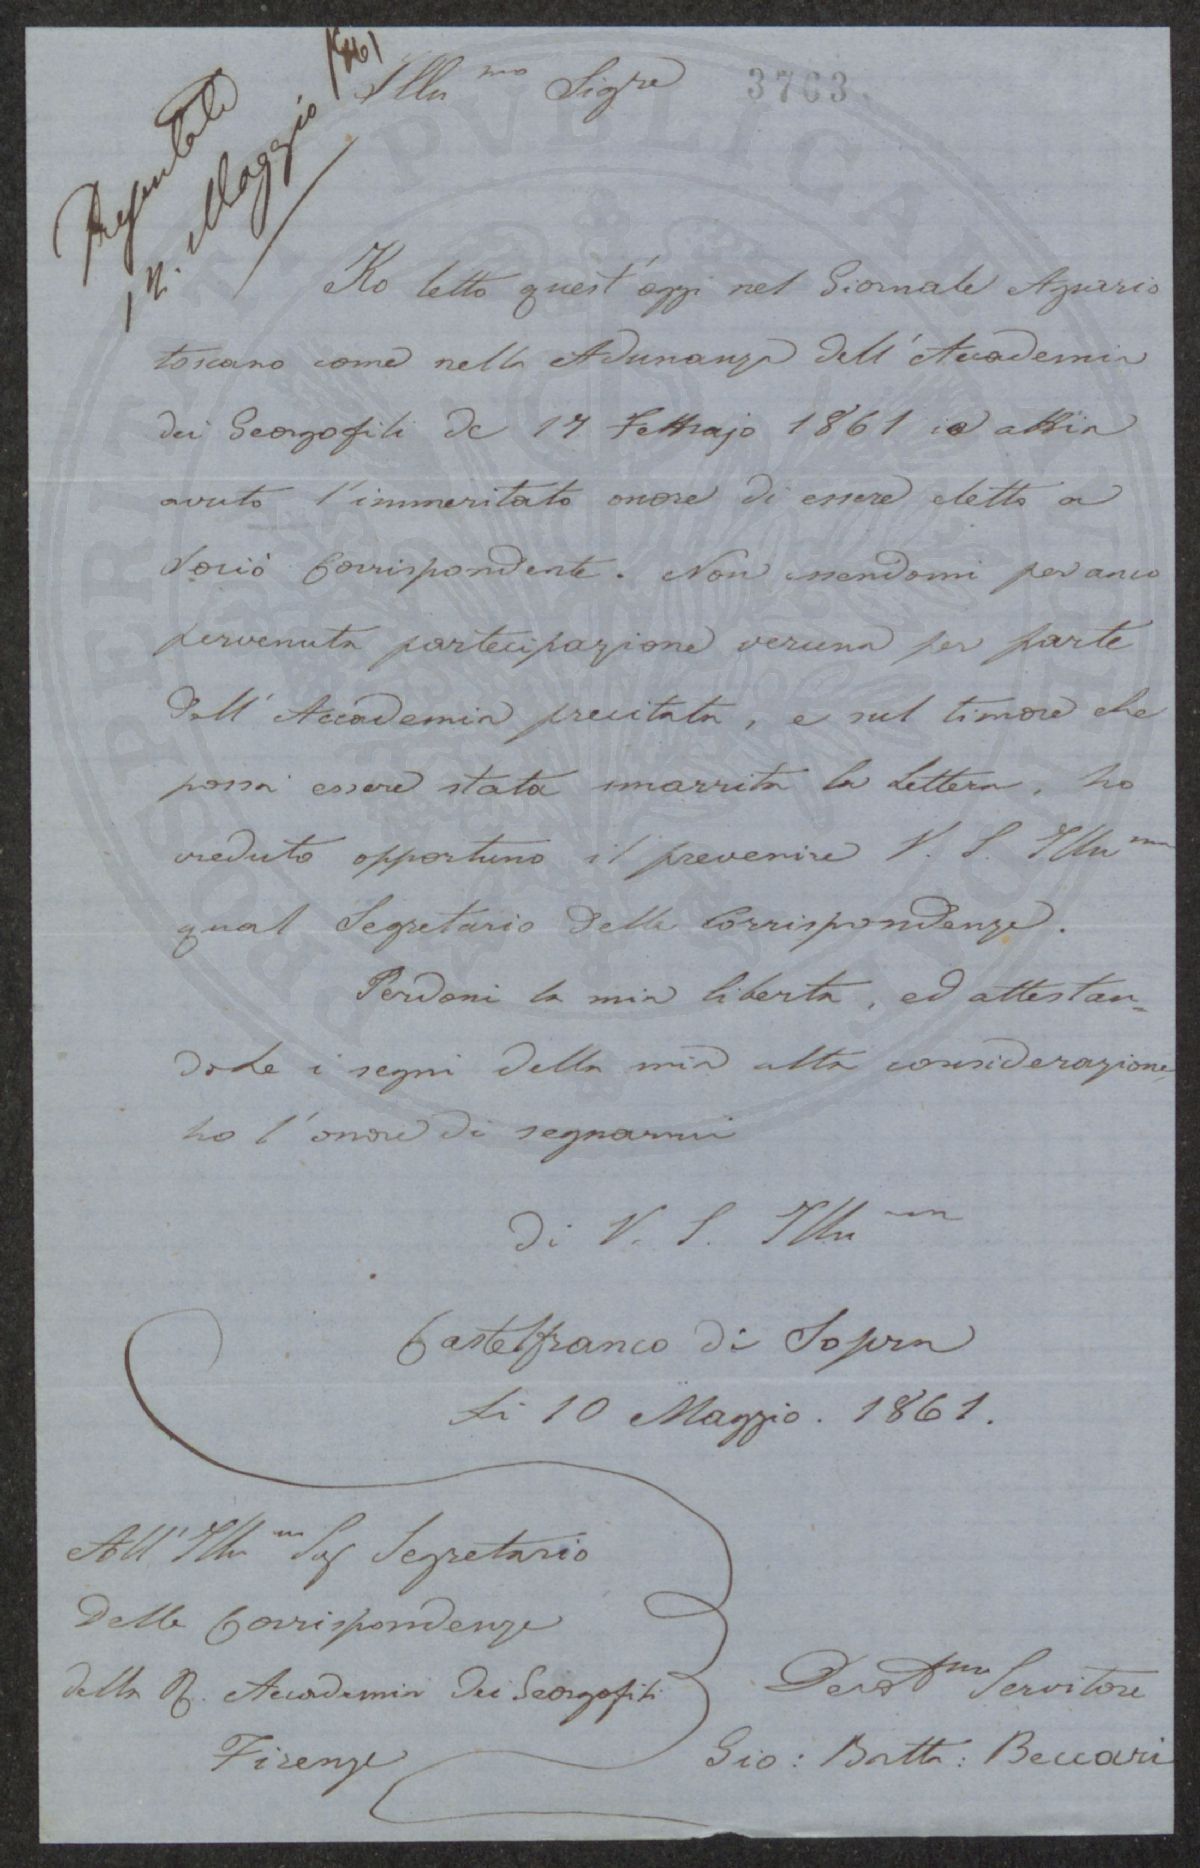 Presentata
12. Maggio 1861
Illmo Sigre 3763.
Ho letto quest'oggi nel Giornale Agrario
toscano come nella Adunanza dell'Accademia
dei Georgofili de 17 Febbrajo 1861 io abbia
avuto l'immeritato onore di essere eletto a
Socio Corrispondente. Non essendomi per anco
pervenuta partecipazione veruna per parte
dell'Accademia precitata, e sul timore che
possa essere stata smarrita la Lettera, ho
creduto opportuno il prevenire V. S. Illma
qual Segretario delle Corrispondenze.
Perdoni la mia libertà, ed attestan=
dole i segni della mia alta considerazione,
ho l'onore di segnarmi
di V. S. Illma
Castelfranco di Sopra
Li 10 Maggio. 1861.
All'Illmo Sig Segretario
delle Corrispondenze
della R. Accademia dei Georgofili
Firenze
Devmo Servitore
Gio: Batta: Beccari
PROSPERITATI PUBLICAE AUGENDAE